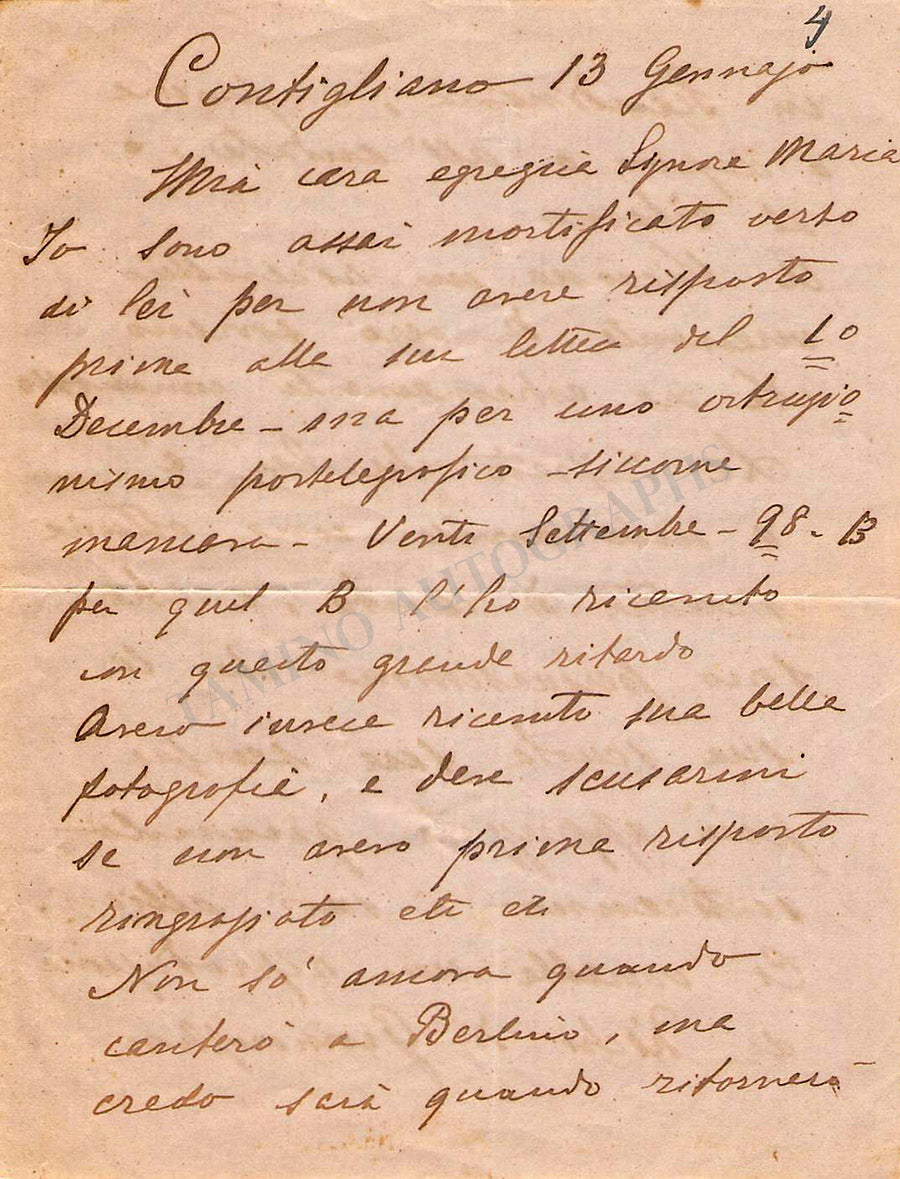 4
Contigliano 13 Gennajo
Mia cara egregia Signora Maria
Io sono assai mortificato verso
di lei per non avere risposto
prima alla sua lettera del 10
Decembre - ma per uno
nismo postelegrafico - siccome
mancava - Venti Settembre - 98 - B
per quel B l'ho ricevuto
con questo grande ritardo
Avevo invece ricevuto sua bella
fotografia, e deve scusarmi
se non avevo prima risposto
ringraziato etc etc
Non só ancora quando
canterò a Berlino, ma
credo sarà quando ritornerà
TAMINO AUTOGRAPHS